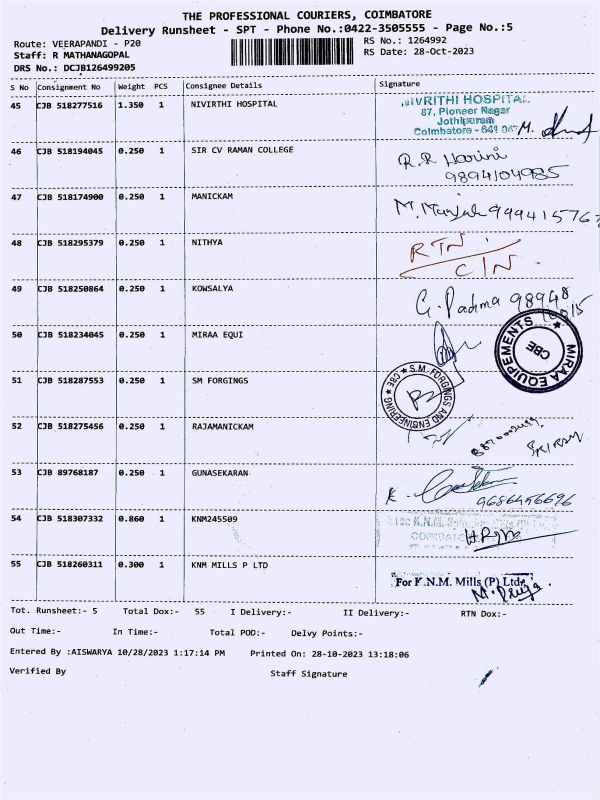 THE PROFESSIONAL COURIERS, COIMBATORE
Delivery Runsheet - SPT - Phone No.:0422-3505555 - Page No.:5
Route: VEERAPANDI - P20
Staff: R MATHANAGOPAL
DRS No.: DCJB126499205
RS No.: 1264992
RS Date: 28-Oct-2023
S No Consignment No Weight PCS Consignee Details Signature
45 CJB 518277516 1.350 1 NIVIRTHI HOSPITAL
NIVRITHI HOSPITAL
87, Pioneer Nagar
Jothipuram
Coimbatore - 641 047
46 CJB 518194045 0.250 1 SIR CV RAMAN COLLEGE
R.R Harini
9894104985
47 CJB 518174900 0.250 1 MANICKAM
48 CJB 518295379 0.250 1 NITHYA
RTN
C/N
49 CJB 518250864 0.250 1 KOWSALYA
G. Padma 98948
50 CJB 518234045 0.250 1 MIRAA EQUI
MIRAA EQUIPEMENTS
CBE
51 CJB 518287553 0.250 1 SM FORGINGS
S.M. FORGINGS AND ENGINEERING
CBE
52 CJB 518275456 0.250 1 RAJAMANICKAM
53 CJB 89768187 0.250 1 GUNASEKARAN
K.
9686456696
54 CJB 518307332 0.860 1 KNM245509
K.N.M.
55 CJB 518260311 0.300 1 KNM MILLS P LTD
For K.N.M. Mills (P) Ltd.,
M. Priya
Tot. Runsheet:- 5 Total Dox:- 55 I Delivery:- II Delivery:- RTN Dox:-
Out Time:- In Time:- Total POD:- Delvy Points:-
Entered By :AISWARYA 10/28/2023 1:17:14 PM Printed On: 28-10-2023 13:18:06
Verified By Staff Signature